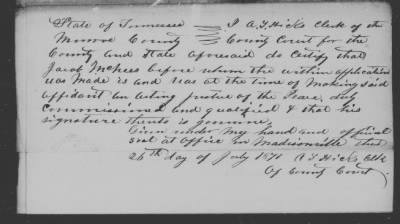 State of Tennessee I A. J. Hicks Clerk of the
Monroe County County Court for the
County and State aforesaid do Certify that
Jacob McGhees before whom the within application
was made is and was at the time of making said
affidavit an acting Justice of the Peace, duly
Commissioned and qualified & that his
signature thereto is genuine.
Given under my hand and official
seal at office in Madisonville this
26th day of July 1871 A J Hicks Clk
Of County Court